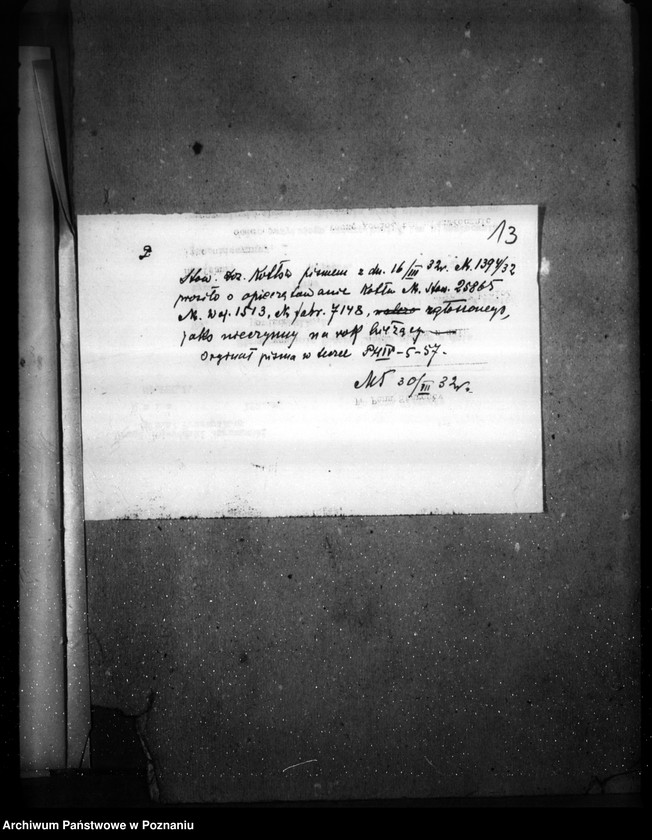 13
Stow. Doz. Kotłów pismem z dn. 16/III 32r. N. 1394/32
prosiło o opieczętowanie kotła N. Stow. 25865
N. Woj. 1513, N. fabr. 7148, zgłoszonego,
jako nieczynny na rok bieżący
Oryginał pisma w teczce PHIV-5-57.
30/III 32r.
Archiwum Państwowe w Poznaniu